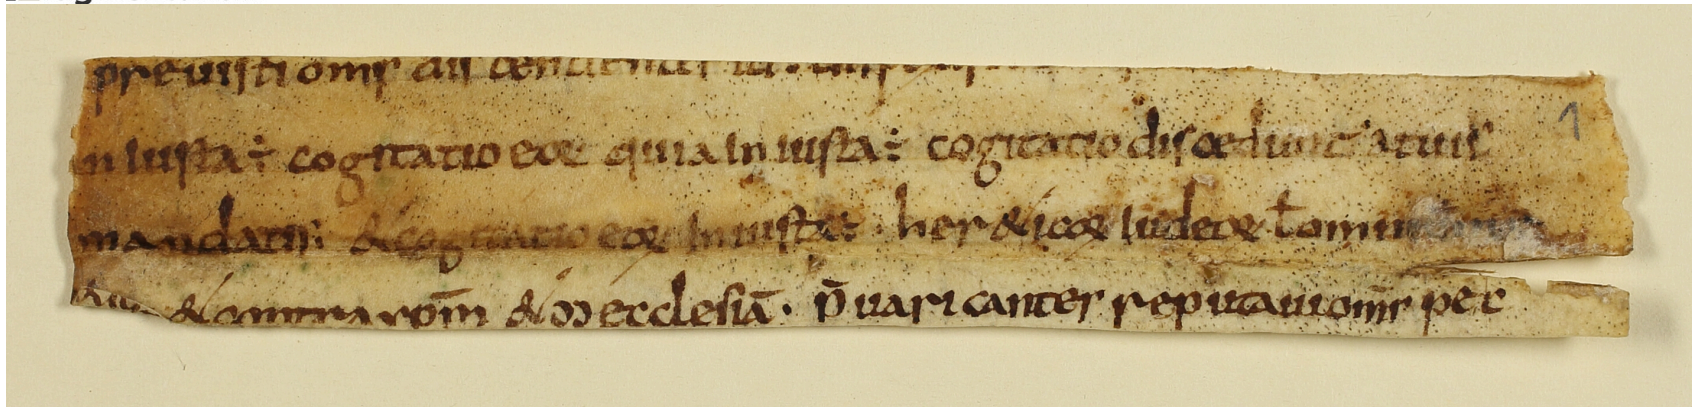 preuisti oms discendentes
in iusta: cogitatio eoꝝ quia in iusta: cogitatio discedunt a tuis
mandatis: & cogitatio eoꝝ in iusta: her&icoꝝ iudeoꝝ ł omni
& contra xpm̄ & ecclesiā. p̄uaricantes reputaui om̄s pec